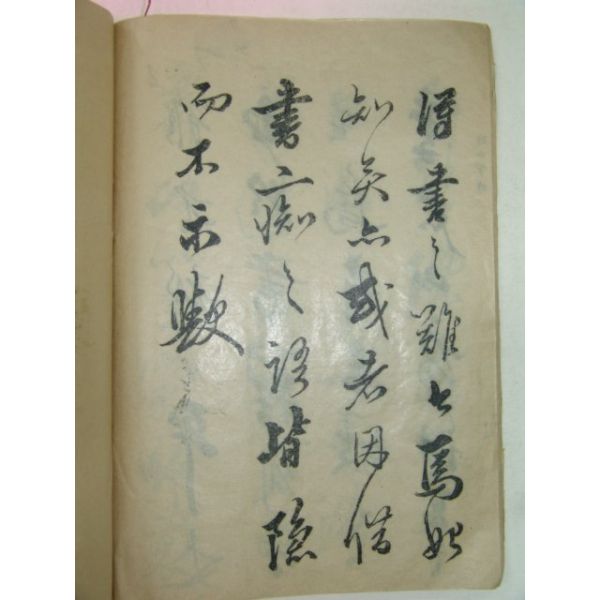 得書之難焉始
知矣亦或者因借
書二痴之語皆隱
而不示歟